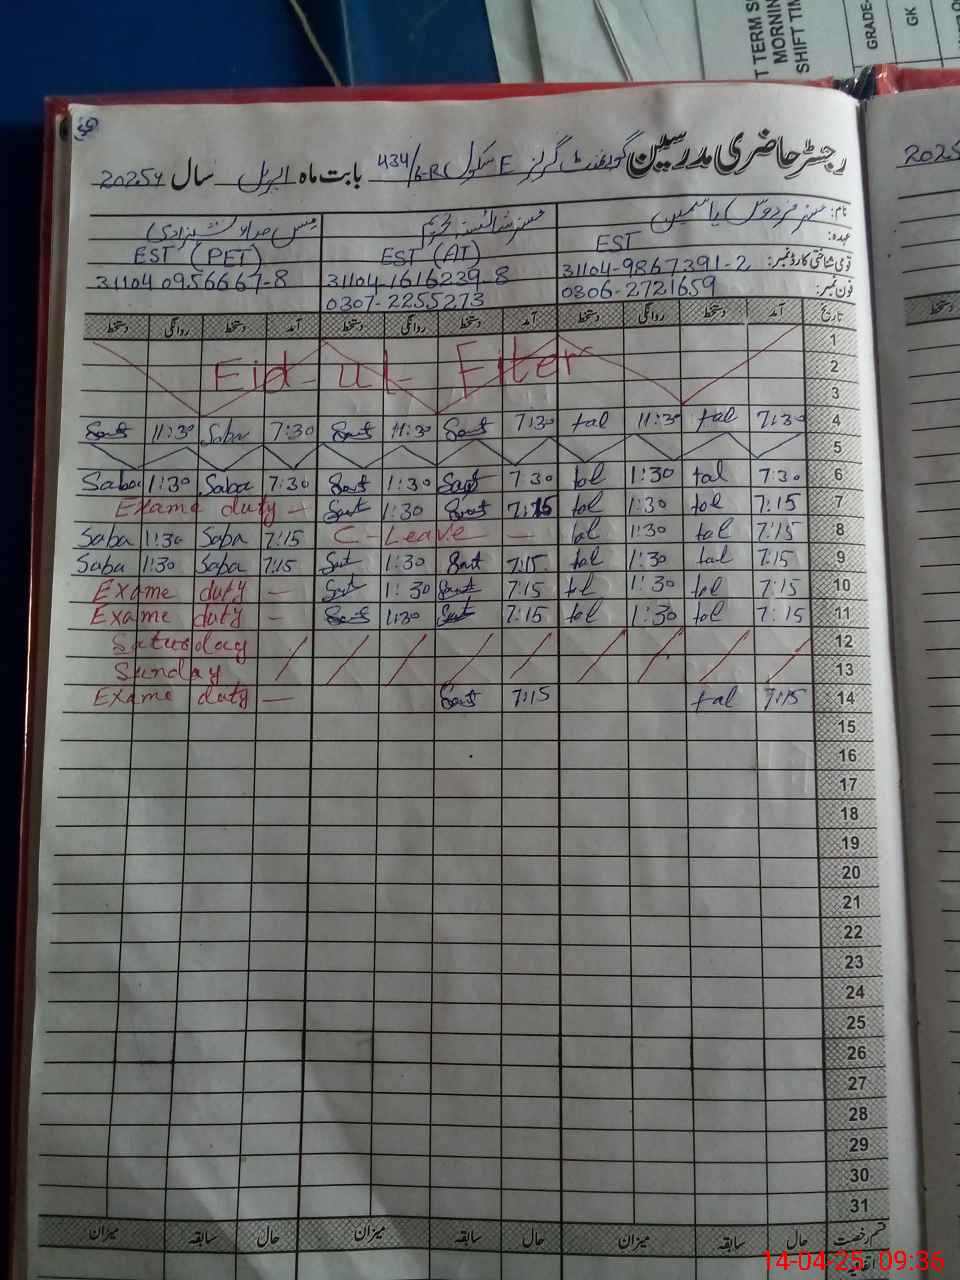 T TERM S
MORNIN
SHIFT TIM
GRADE-
GK
رجسٹر حاضری مدرسین گورنمنٹ گرلز E سکول 434/6-R بابت ماہ اپریل سال 2025ء
2025
نام: مسز فردوس یاسمین مسز شائستہ مس صباء شہزادی
عہدہ: EST EST (AT) EST (PET)
قومی شناختی کارڈ نمبر: 31104-9867391-2 31104-1616239-8 31104 0956667-8
فون نمبر: 0306-2721659 0307-2255273
تاریخ آمد دستخط روانگی دستخط آمد دستخط روانگی دستخط آمد دستخط روانگی دستخط
1
Eid-ul-Fiter 2
3
Saba 7:30 11:30 7:30 11:30 tal 11:30 tal 7:30 4
5
Saba 1:30 Saba 7:30 1:30 7:30 tal 1:30 tal 7:30 6
Exame duty - 1:30 7:15 tol 1:30 tol 7:15 7
Saba 1:30 Saba 7:15 C-Leave - tal 1:30 tal 7:15 8
Saba 1:30 Saba 7:15 1:30 7:15 tal 1:30 tal 7:15 9
Exame duty - 1:30 7:15 tol 1:30 tol 7:15 10
Exame duty - 1:30 7:15 tol 1:30 tol 7:15 11
Saturday 12
Sunday 13
Exame duty - 7:15 tal 7:15 14
15
16
17
18
19
20
21
22
23
24
25
26
27
28
29
30
31
قسم رخصت حال سابقہ میزان حال سابقہ میزان حال سابقہ میزان
اتفاقیہ
14-04-25 09:36